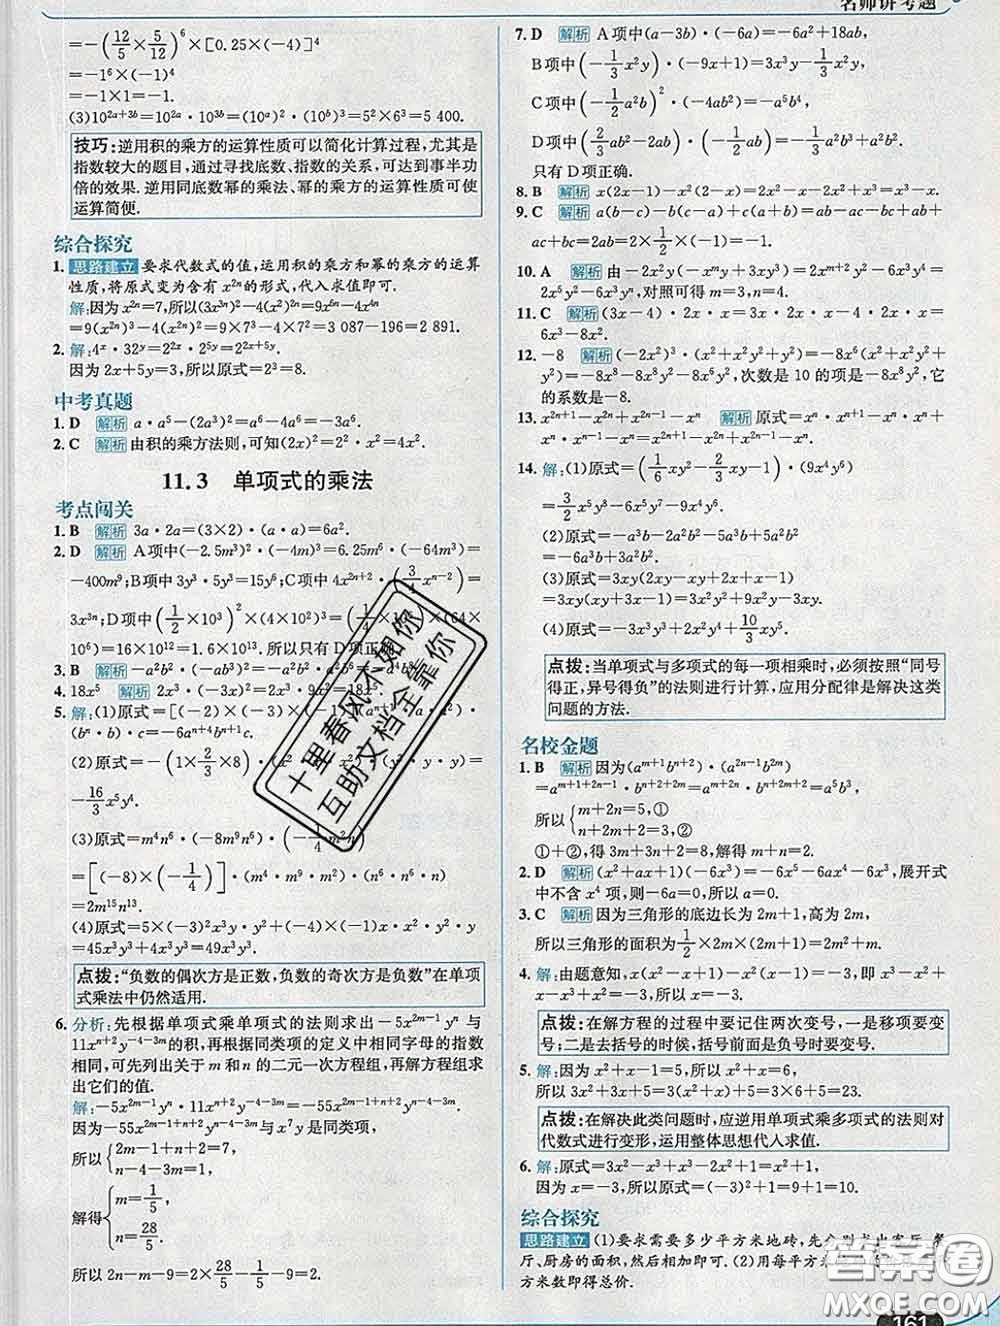 名师讲考题
=-(12/5×5/12)⁶×[0.25×(-4)]⁴
=-1⁶×(-1)⁴
=-1×1=-1.
(3)10²ᵃ⁺³ᵇ=10²ᵃ·10³ᵇ=(10ᵃ)²·(10ᵇ)³=5²×6³=5 400.
技巧:逆用积的乘方的运算性质可以简化计算过程,尤其是
指数较大的题目,通过寻找底数、指数的关系,可达到事半功
倍的效果.逆用同底数幂的乘法、幂的乘方的运算性质可使
运算简便.
综合探究
1. 思路建立 要求代数式的值,运用积的乘方和幂的乘方的运算
性质,将原式变为含有 x²ⁿ的形式,代入求值即可.
解:因为x²ⁿ=7,所以(3x³ⁿ)²-4(x²)²ⁿ=9x⁶ⁿ-4x⁴ⁿ
=9(x²ⁿ)³-4(x²ⁿ)²=9×7³-4×7²=3 087-196=2 891.
2. 解:4ˣ·32ʸ=2²ˣ·2⁵ʸ=2²ˣ⁺⁵ʸ.
因为2x+5y=3,所以原式=2³=8.
中考真题
1. D 解析 a·a⁵-(2a³)²=a⁶-4a⁶=-3a⁶.
2. C 解析 由积的乘方法则,可知(2x)²=2²·x²=4x².
11.3 单项式的乘法
考点闯关
1. B 解析 3a·2a=(3×2)·(a·a)=6a².
2. D 解析 A项中(-2.5m³)²·(-4m)³=6.25m⁶·(-64m³)=
-400m⁹;B项中3y³·5y³=15y⁶;C项中4x²ⁿ⁺²·(3/4xⁿ⁻²)=
3x³ⁿ;D项中(1/2×10³)²×(4×10²)³=(1/4×10⁶)×(64×
10⁶)=16×10¹²=1.6×10¹³.所以只有D项正确.
3. B 解析 -a²b²·(-ab³)
4. 18x⁵ 解析 2x³·(-3x)²=2x³·9x²=18x⁵.
5. 解:(1)原式=[(-2)×(-3)×(-1)]
·(bⁿ·b)·c=-6aⁿ⁺⁴bⁿ⁺¹c.
(2)原式=-(1×2/3×8)·(x²·x³)·(y·y³)=
-16/3x⁵y⁴.
(3)原式=m⁴n⁶·(-8m⁹n⁶)·(-1/4m²n)
=[(-8)×(-1/4)]·(m⁴·m⁹·m²)·(n⁶·n⁶·n)
=2m¹⁵n¹³.
(4)原式=5×(-3)²·x³y·y²+(-4)×(-1)·x³·y²·y
=45x³y³+4x³y³=49x³y³.
点拨:“负数的偶次方是正数,负数的奇次方是负数”在单项
式乘法中仍然适用.
6. 分析:先根据单项式乘单项式的法则求出-5x²ᵐ⁻¹yⁿ与
11xⁿ⁺²y⁻⁴⁻³ᵐ的积,再根据同类项的定义中相同字母的指数
相同,可先列出关于m和n的二元一次方程组,再解方程组求
出它们的值.
解:-5x²ᵐ⁻¹yⁿ·11xⁿ⁺²y⁻⁴⁻³ᵐ=-55x²ᵐ⁻¹⁺ⁿ⁺²yⁿ⁻⁴⁻³ᵐ.
因为-55x²ᵐ⁻¹⁺ⁿ⁺²yⁿ⁻⁴⁻³ᵐ与x⁷y是同类项,
所以{2m-1+n+2=7,
n-4-3m=1,
解得{m=1/5,
n=28/5.
所以2n-m-9=2×28/5-1/5-9=2.
7. D 解析 A项中(a-3b)·(-6a)=-6a²+18ab,
B项中(-1/3x²y)·(-9x+1)=3x³y-1/3x²y,
C项中(-1/2a²b)²·(-4ab²)=-a⁵b⁴,
D项中(2/3ab²-2ab)·(-1/2ab)=-1/3a²b³+a²b².
只有D项正确.
8. B 解析 x(2x-1)-x²(2-x)=2x²-x-2x²+x³=x³-x.
9. C 解析 a(b-c)-b(c-a)+c(a+b)=ab-ac-bc+ab+
ac+bc=2ab=2×1/2×(-1)=-1.
10. A 解析 由-2x²y(-xᵐy+3xy³)=2xᵐ⁺²y²-6x³y⁴=
2x⁵y²-6x³yⁿ,对照可得m=3,n=4.
11. C 解析 (3x-4)·2x·x=
6x³-8x².
12. -8 解析 (-2x²)³·(x²+x²y²+y²)=-8x⁶(x²+x²y²+y²)
=-8x⁸-8x⁸y²-8x⁶y²,次数是10的项是-8x⁸y²,它
的系数是-8.
13. x²ⁿ⁺¹-x²ⁿ+x²ⁿ⁻¹-xⁿ 解析 原式=xⁿ·xⁿ⁺¹-xⁿ·xⁿ+
xⁿ·xⁿ⁻¹-xⁿ=x²ⁿ⁺¹-x²ⁿ+x²ⁿ⁻¹-xⁿ.
14. 解:(1)原式=(1/6xy²-2/3xy-1)·(9x⁴y⁶)
=3/2x⁵y⁸-6x⁵y⁷-9x⁴y⁶.
(2)原式=-a³b-2a²b²-5a³b+5a²b²
=-6a³b+3a²b².
(3)原式=3xy(2xy-xy²+x²y-1)
=3xy(xy-xy²+x²y-1)=3x²y²-3x²y³+3x³y²-3xy.
(4)原式=-x³y³+x²y⁴+10/3xy⁵.
点拨:当单项式与多项式的每一项相乘时,必须按照“同号
得正,异号得负”的法则进行计算,应用分配律是解决这类
问题的方法.
名校金题
1. B 解析 因为(aᵐ⁺¹bⁿ⁺²)·(a²ⁿ⁻¹b²ᵐ)
=aᵐ⁺¹⁺²ⁿ⁻¹·bⁿ⁺²⁺²ᵐ=aᵐ⁺²ⁿ·bⁿ⁺²ᵐ⁺²=a⁵b³,
所以{m+2n=5,①
n+2m+2=3,②
①+②,得3m+3n+2=8,解得m+n=2.
2. D 解析 (x²+ax+1)(-6x³)=-6x⁵-6ax⁴-6x³,展开式
中不含x⁴项,则-6a=0,所以a=0.
3. C 解析 因为三角形的底边长为2m+1,高为2m,
所以三角形的面积为1/2×2m×(2m+1)=2m²+m.
4. 解:由题意知,x(x²-x+1)-x²(x-1)=-3,即x³-x²
+x-x³+x²=-3,所以x=-3.
点拨:在解方程的过程中要记住两次变号,一是移项要变
号;二是去括号的时候,括号前面是负号时要变号.
5. 解:因为x²+x-1=5,所以x²+x=6.
所以3x²+3x+5=3(x²+x)+5=3×6+5=23.
点拨:在解决此类问题时,应逆用单项式乘多项式的法则对
代数式进行变形,运用整体思想代入求值.
6. 解:原式=3x²-x³+x³-2x²+1=x²+1.
因为x=-3,所以原式=(-3)²+1=9+1=10.
综合探究
思路建立 (1)要求需要多少平方米地砖,先分别求出客厅、餐
厅、厨房的面积,然后相加即可.(2)用每平方米
方米数即得总价.
十里春风不如你
互助文档全靠你
答案圈
MXQE.COM
161